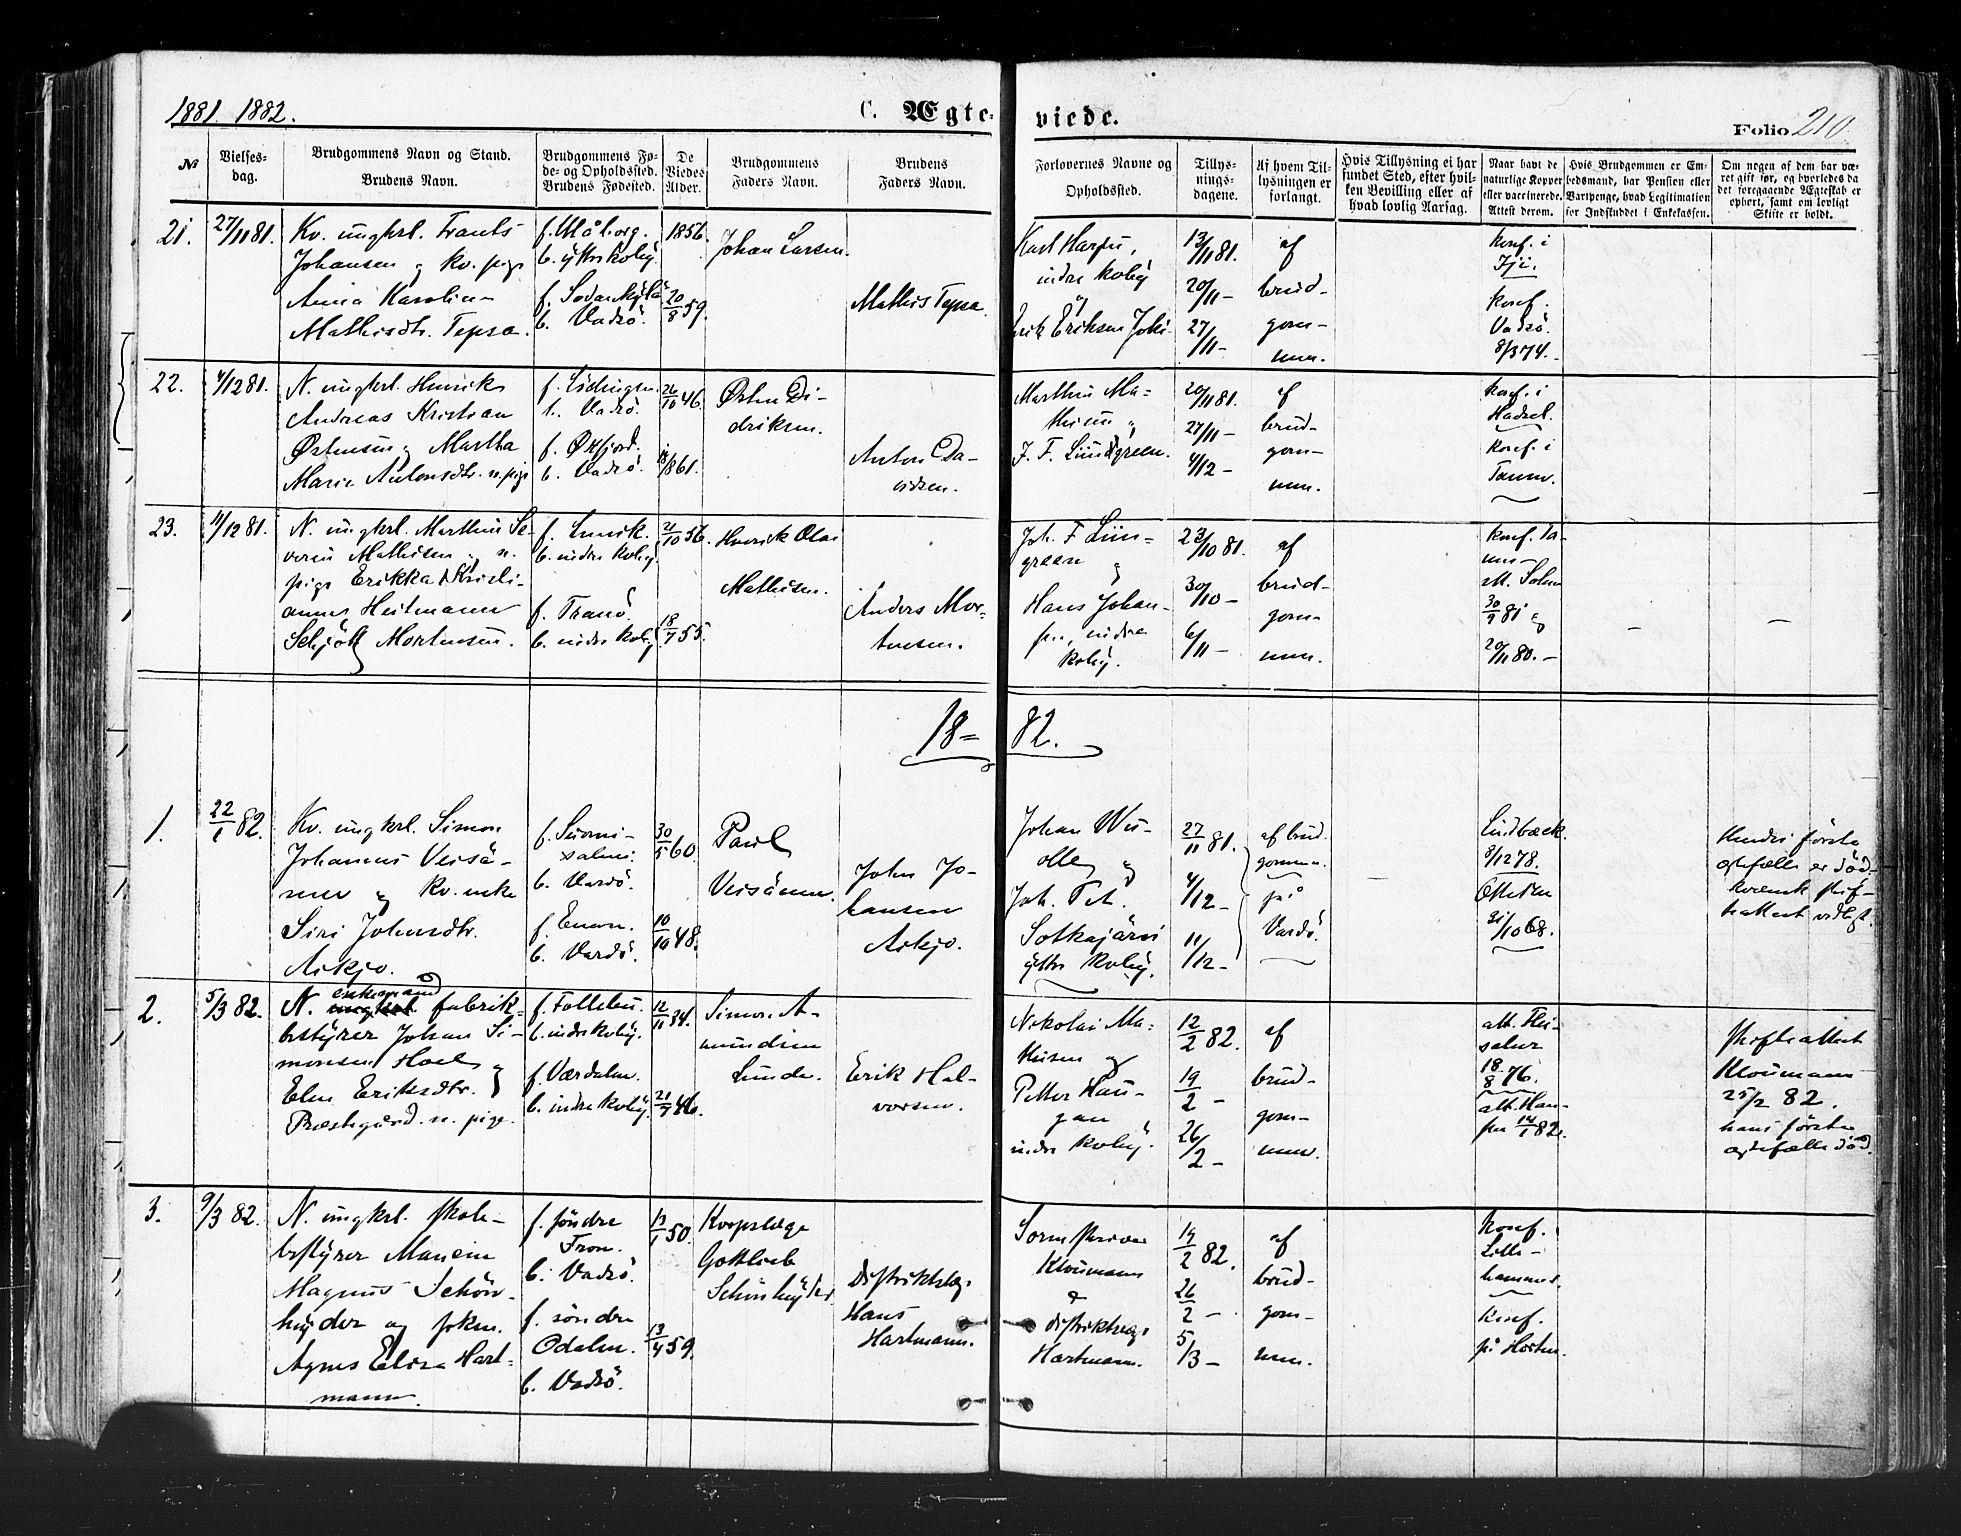 1881. 1882.
C. Ægte-
viede.
Folio 210.
№
Vielses-
dag.
Brudgommens Navn og Stand.
Brudens Navn.
Brudgommens Fø-
de- og Opholdssted.
Brudens Fødested.
De
Viedes
Alder.
Brudgommens
Faders Navn.
Brudens
Faders Navn.
Forlovernes Navne og
Opholdssted.
Tillys-
nings-
dagene.
Af hvem Til-
lysningen er
forlangt.
Hvis Tillysning ei har
fundet Sted, efter hvil-
ken Bevilling eller af
hvad lovlig Aarsag.
Naar havt de
naturlige Kopper
eller vaccinerede.
Attest derom.
Hvis Brudgommen er Em-
bedsmand, har Pension eller
Vartpenge, hvad Legitimation
for Indskuddet i Enkekassen.
Om nogen af dem har væ-
ret gift før, og hvorledes da
det foregaaende Ægteskab er
ophørt, samt om lovligt
Skifte er holdt.
21.
27/11 81.
Kv. ungkrl. Frants
Johansen og kv. pige
Anna Karolin-
Mathisdtr. Tepsa.
f. Uleåborg.
b. yttre kvby.
f. Sodankylä
b. Vadsö.
1856.
20/8 59.
Johan Larsen.
Mathis Tepsa.
Karl Harju,
indre kvby
Erik Eriksen Joki
13/11 81.
20/11 -
27/11 -
af
brud-
gom-
men.
konf. i
Iji.
konf.
Vadsö.
8/3 74.
22.
4/12 81.
N. ungkrl. Henrik
Andreas Kristian
Østensen og Martha
Marie Antonsdtr. n. pige
f. Lödingen.
b. Vadsö.
f. Øxfjord.
b. Vadsö.
26/10 46.
18/8 61.
Østen Di-
driksen.
Anton Da-
vidsen.
Marthin Ma-
thisen og
J. F. Lündgreen.
20/11 81.
27/11 -
4/12 -
af
brud-
gom-
men.
konf. i
Hadsel.
konf. i
Tanen.
23.
11/12 81.
N. ungkrl. Marthin Se-
verin Mathisen og n.
pige Erikka Kristi-
anna Heitmann
Schjött Mortensen.
f. Lenvik.
b. indre kvby.
f. Tranö.
b. indre kvby.
21/10 56.
18/7 55.
Henrik Olai
Mathisen.
Anders Mor-
tensen.
Joh. F. Lün-
green og
Hans Johan-
sen, indre
kvby.
23/10 81.
30/10 -
6/11 -
af
brud-
gom-
men.
konf. Ta-
nen -
att.
30/9 81 og
20/11 80. -
18 = 82.
1.
22/1 82.
Kv. ungkrl. Simon
Johannes Veisä-
nen og kv. enke
Siri Johnsdtr.
Askjo.
f. Suomi-
salmi.
b. Vardö.
f. Enon.
b. Vardö.
30/5 60.
10/10 48.
Paul
Veisänen.
John Jo-
hansen
Askjo.
Johan Wu-
olle og
Joh. Pet.
Sotkajärvi
yttre kvby.
27/11 81.
4/12 -
11/12 -
af brud-
gommen.
på
Vardö.
Lindbæck.
8/12 78.
31/10 68.
Hendes første
ægtefælle er død -
kvensk skif-
teattest vedlagt.
2.
5/3 82.
N. enkemand fabrik-
bestyrer Johan Si-
monsen Hoel og
Elen Eriksdtr.
Præstegård. n. pige.
f. Follebu.
b. indre kvby.
f. Værdalen.
b. indre kvby.
12/11 34.
21/7 46.
Simon A-
mundsen
Lunde.
Erik Hal-
vorsen.
Nikolai Ma-
thisen og
Petter Hau-
gan
indre kvby.
12/2 82.
19/2 -
26/2 -
af
brud-
gom-
men.
att.
18/8 76.
att. Han-
sen 14/1 82.
Skifteattest
Kloumann
25/2 82.
hans første
ægtefælle død.
3.
9/3 82.
N. ungkrl. skole-
bestyrer
Magnus Schön-
heyder og frkn.
Agnes Elisa Hart-
mann.
f. söndre
Fron.
b. Vadsö.
f. söndre
Odalen.
b. Vadsö.
13/1 50.
13/4 59.
Korpslæge
Gottlieb
Schönheyder
Distriktslæge
Hans
Hartmann.
Sorenskriver
Kloumann
&
distriktslæge
Hartmann.
19/2 82.
26/2 -
5/3 -
af
brud-
gom-
men.
Konf.
Lille-
hammer.
Konf.
på Horten.